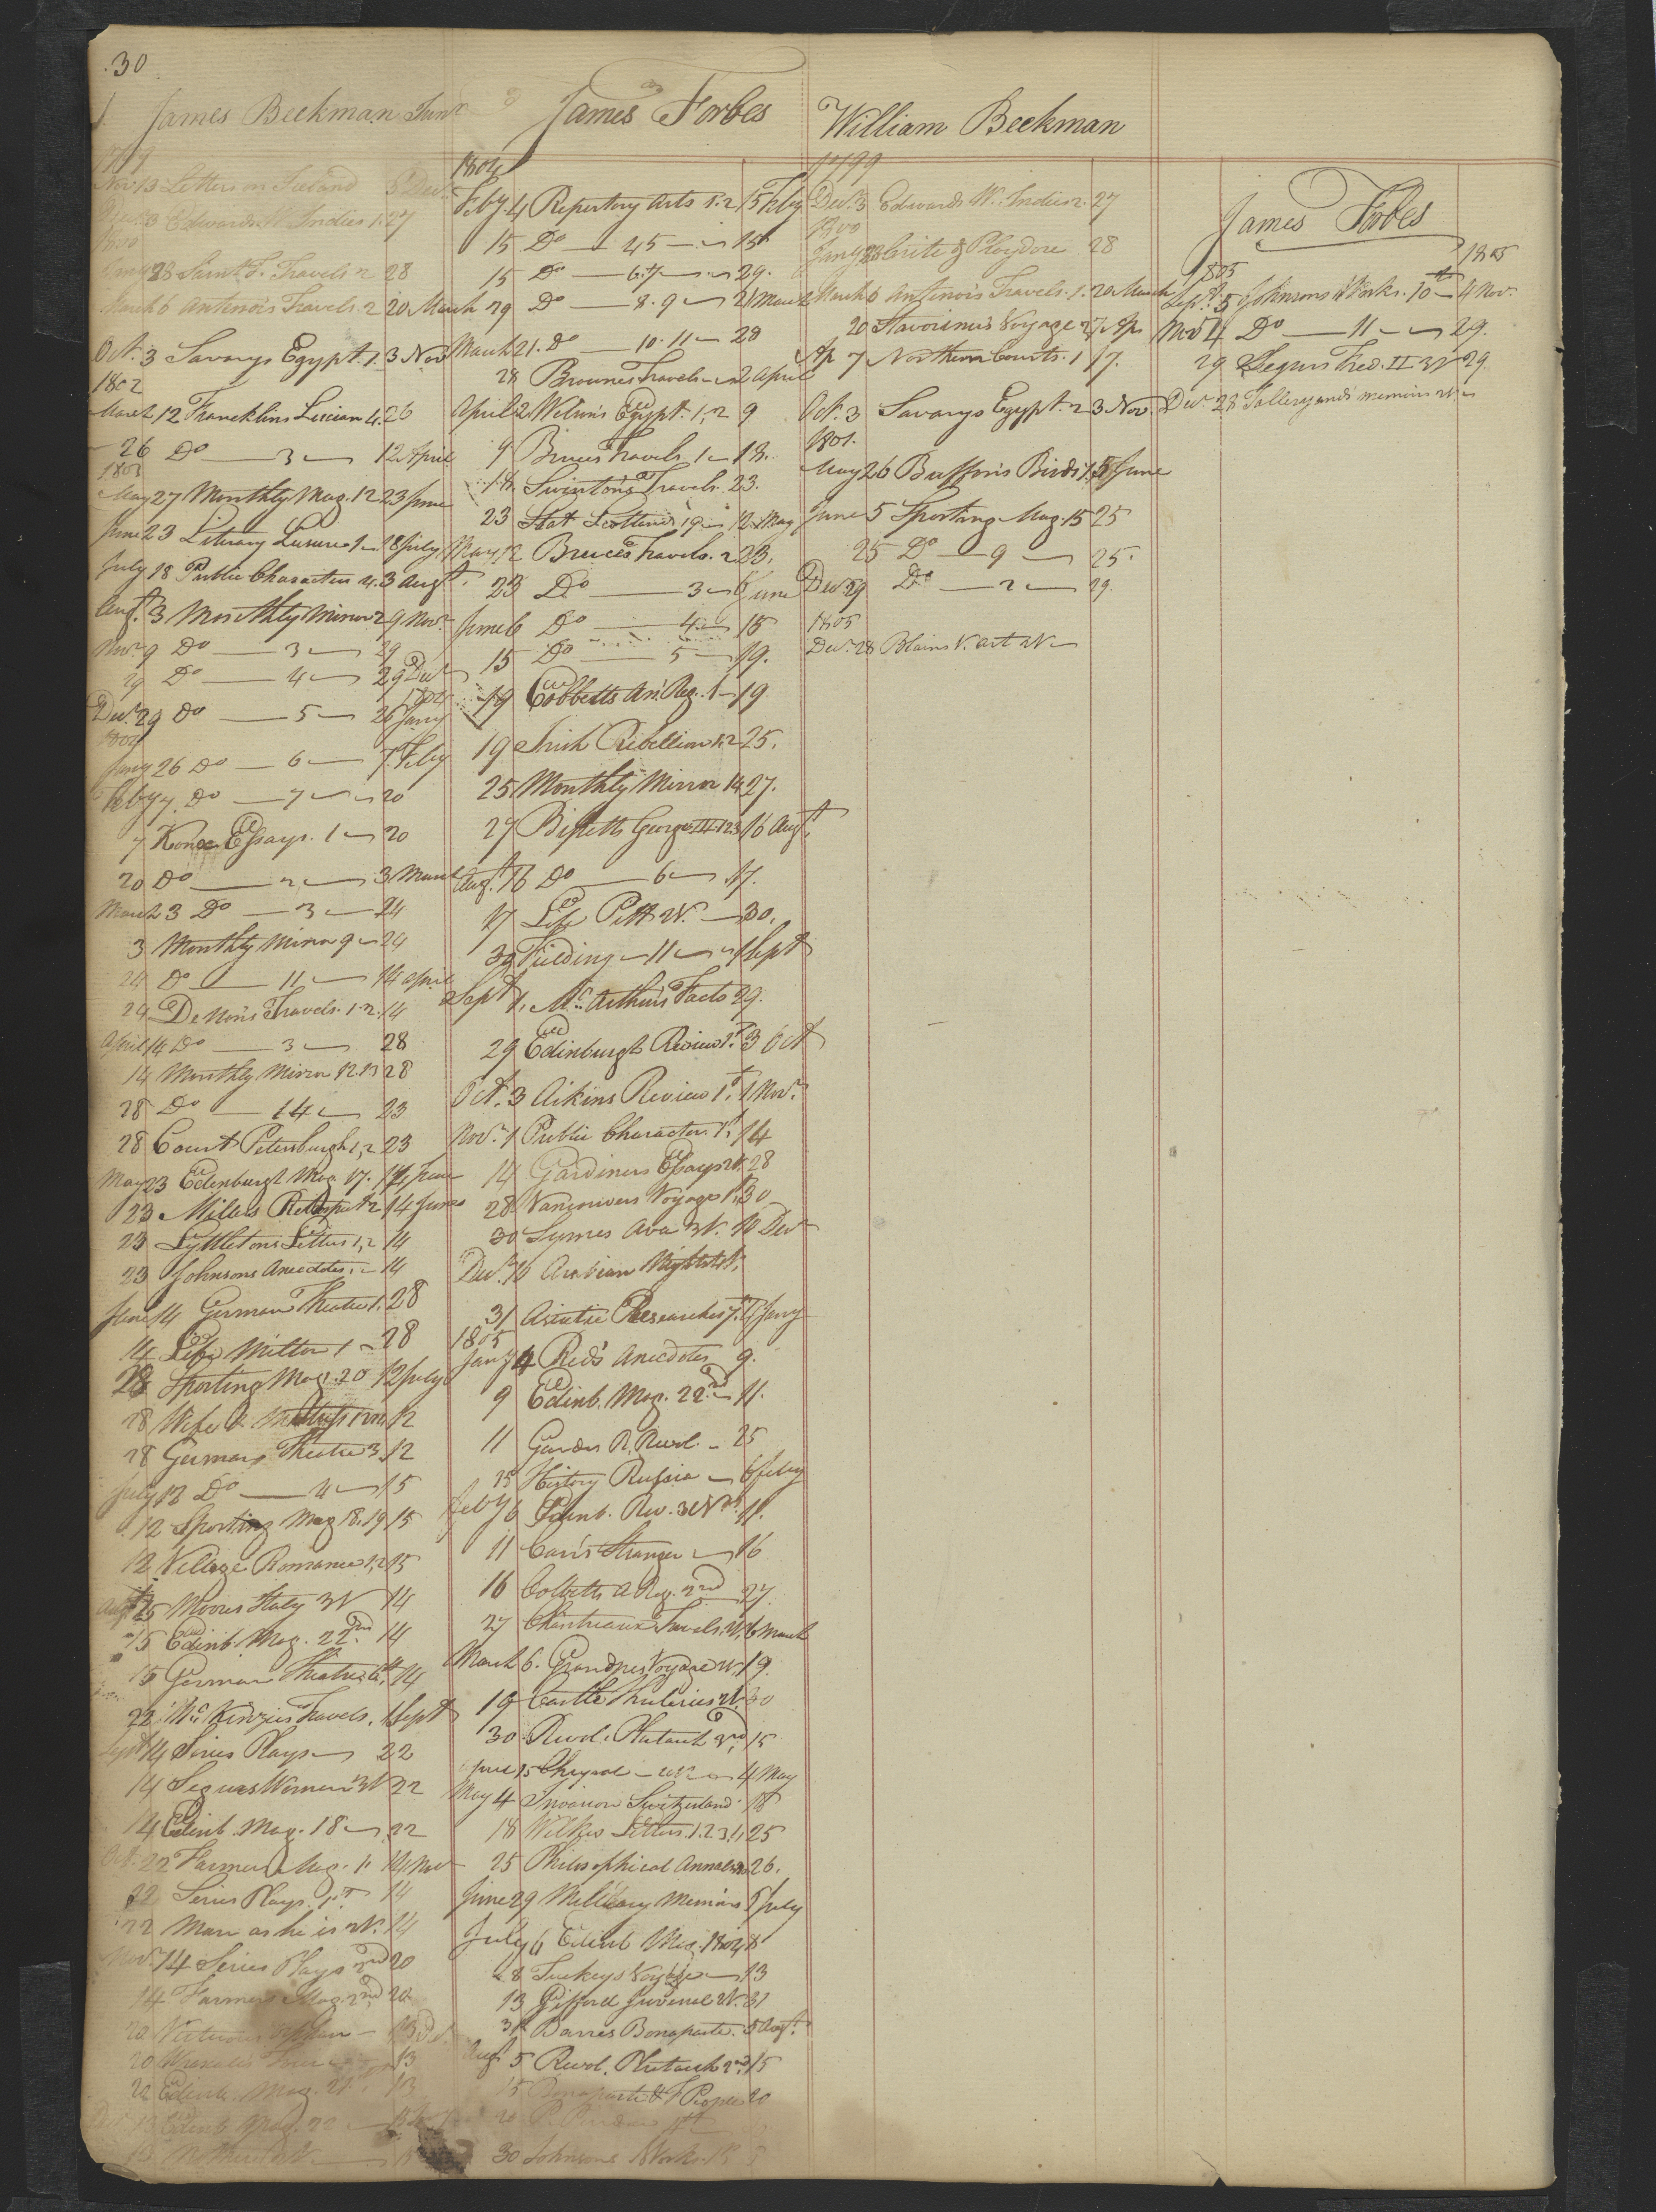 30
James Beekman Junr
1799
Nov. 13 Letters on Iceland 3 Decr
Decr 3 Edwards W. Indies 1. 27
1800
Jany 28 Travels 2 28
March 6 Antenors Travels. 2 20 March
Oct. 3 Savarys Egypt. 1. 3 Nov
1802
March 12 Francklins Lucian 4. 26
26 Do 3 12 April
1803
May 27 Monthly Mag. 12 23 June
June 23 Literary Leisure 1 18 July
July 18 Public Characters 4. 3 Augt.
Augt. 3 Monthly Mirror 2 9 Novr
Novr 9 Do 3 29
29 Do 4 29 Decr
1804
Decr 29 Do 5 26 Jany
1804
Jany 26 Do 6 7 Feby
Feby 7. Do 7 20
7 Knox Essays. 1 20
20 Do 2 3 March
March 3 Do 3 24
3 Monthly Mirror 9 24
24 Do 11 14 April
24 De Non's Travels. 1.2. 14
April 14 Do 3 28
14 Monthly Mirror 12.13 28
28 Do 14 23
28 Court Petersburgh 1,2 23
May 23 Edenburgh Mag 17. 14 June
23 Millers Retrospect 2 14 June
23 Lyttletons Letters 1,2 14
23 Johnsons Anecdotes. 14
June 14 German Theatre 1. 28
14 Life Milton 1 28
28 Sporting Mag. 20 12 July
28 Wife & 12
28 German Theatre 3. 12
July 12 Do 4 15
12 Sporting Mag 18.19 15
12 Village Romance 1,2 15
Augt 15 Moores Italy 3V 14
15 Edinb. Mag. 22nd. 14
15 German Theatre 6th. 14
22 McKenzies Travels. 1 Sept
Sept 14 Series Plays 22
14 Segurs Women 3V 22
14 Edinb. Mag. 18 22
Oct. 22 Farmers Mag. 1. 14 Nov
22 Series Plays. 1st 14
22 Man as he is 2V. 14
Novr. 14 Series Plays 2nd 20
14 Farmers Mag. 2nd 20
20 13 Dec.
20 Wraxalls 13
20 Edinb. Mag. 21st. 13
13 Edinb Mag. 22
13
James Forbes
1804
Feby. 4 Repertory Arts 1.2 15 Feby
15 Do 4 5 15
15 Do 6.7 29.
29 Do 8.9 21 March
March 21. Do 10.11 28
28 Brownes Travels 2 April
April 2 Wilson's Egypt. 1,2 9
9 Bruces Travels 1 18.
18. Swinton's Travels. 23.
23 Stat Scotland 19 12 May
May 12 Bruces Travels. 2 23.
23 Do 3 6 June
June 6 Do 4 15
15 Do 5 19.
19 Cobbetts An. Reg. 1 19
19 Irish Rebellion 1.2 25.
25 Monthly Mirror 14 27.
27 Bissetts George III 1 2 3 16 Augt.
Augt. 16 Do 6 17.
17 Life Pitt 2V. 30.
30 Fielding 11 1 Sept
Sept 1. McArthurs Facts 29.
29 Edinburgh Review 1st. 3 Oct
Oct. 3 Aikins Review 1st. 1 Novr.
Novr. 1 Public Characters 1st. 14
14 Gardiners Essays 2V. 28
28 Vancouvers Voyage 1st. 30
30 Symes Ava 3V. 10 Decr
Decr. 10 Arabian Nights
31 Asiatic Researches 7. 4 Jany
1805
Jany 4 Reid's Anecdotes 9.
9 Edinb. Mag. 22nd 11.
11 R. Revol. 25
25 History Russia 6 Feby
Feby 6 Edinb. Rev. 3d Vol. 11.
11 Carr's Stranger 16
16 Cobbetts A Reg. 2nd 27
27 Travels. 2V. 6 March
March 6. Grandpres Voyage 2V. 19.
19 Castle 2V. 30
30 Revol. Plutarch 3rd. 15
April 15 Chrysal 4 May
May 4 Invasion Switzerland 18
18 Wilkes Letters. 1.2 3.4 25
25 Philosophical Annals 26.
June 29 Military Memoirs 5 July
July 6 Edinb Mag. 1804 8
8 Tuckeys Voyage 13
13 Gifford Juvenal 2V. 31
31 Barres Bonaparte. 5 Augt.
Augt 5 Revol. Plutarch 2nd. 15
15 Bonaparte & F People 20
20
30 Johnsons Works.
William Beekman
1799
Decr. 3 Edwards W. Indies 2. 27
1800
Jany 28 28
March 6 Antenors Travels. 1. 20 March
20 Stavorinus Voyage 2 7 Ap
Ap 7 Northern Courts. 1 17.
Oct. 3 Savarys Egypt. 2 3 Nov.
1801.
May 26 Buffon's Birds 1. 5 June
June 5 Sporting Mag. 15 25
25 Do 9 25.
Decr. 29 Do 2 29.
1805
Decr. 28 Blains V. Art 2V
James Forbes
1805 1805
Sept. 5 Johnsons Works. 10th 4 Nov.
Nov 4 Do 11 29.
29 Segurs Fred. II 3V 29.
Decr 28 Tallerands memoirs 2V.